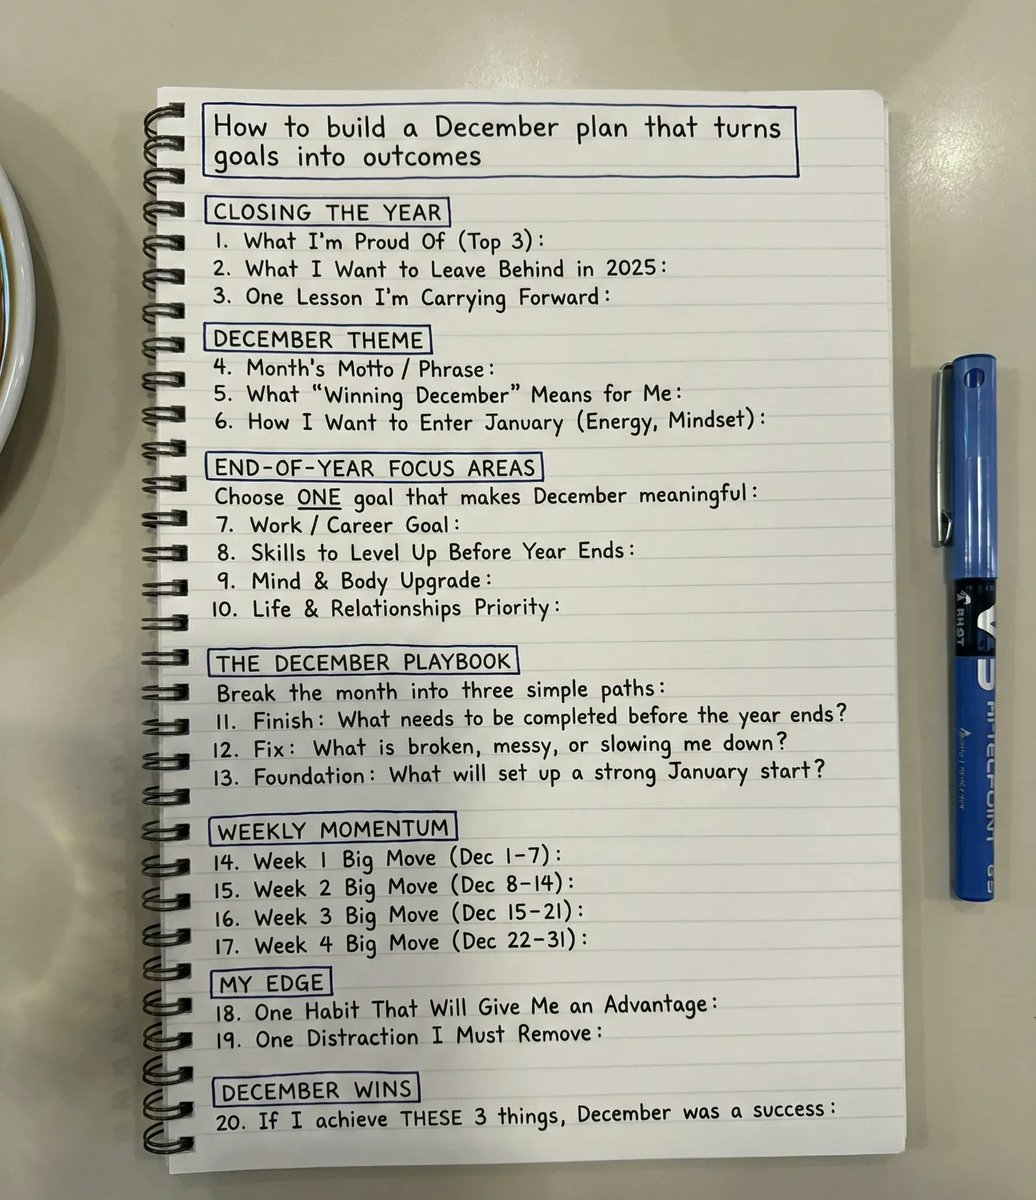 How to build a December plan that turns
goals into outcomes
CLOSING THE YEAR
1. What I'm Proud Of (Top 3):
2. What I Want to Leave Behind in 2025:
3. One Lesson I'm Carrying Forward:
DECEMBER THEME
4. Month's Motto / Phrase:
5. What "Winning December" Means for Me:
6. How I Want to Enter January (Energy, Mindset):
END-OF-YEAR FOCUS AREAS
Choose ONE goal that makes December meaningful:
7. Work / Career Goal:
8. Skills to Level Up Before Year Ends:
9. Mind & Body Upgrade:
10. Life & Relationships Priority:
THE DECEMBER PLAYBOOK
Break the month into three simple paths:
11. Finish: What needs to be completed before the year ends?
12. Fix: What is broken, messy, or slowing me down?
13. Foundation: What will set up a strong January start?
WEEKLY MOMENTUM
14. Week 1 Big Move (Dec 1-7):
15. Week 2 Big Move (Dec 8-14):
16. Week 3 Big Move (Dec 15-21):
17. Week 4 Big Move (Dec 22-31):
MY EDGE
18. One Habit That Will Give Me an Advantage:
19. One Distraction I Must Remove:
DECEMBER WINS
20. If I achieve THESE 3 things, December was a success:
V5